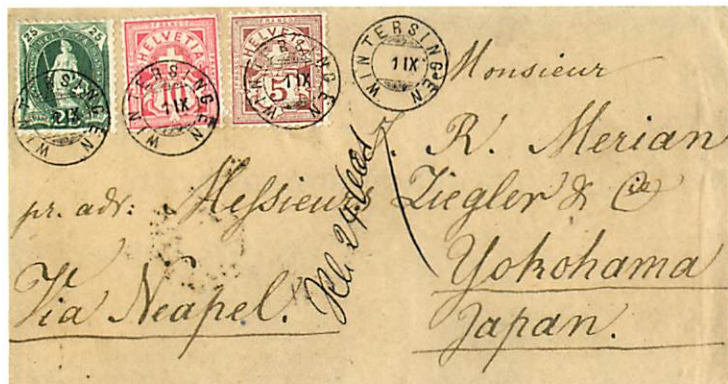 25 25
FRANCO HELVETIA 10
FRANCO HELVETIA 5
WINTERSINGEN 1 IX
WINTERSINGEN 1 IX
WINTERSINGEN 1 IX
WINTERSINGEN 1 IX
Monsieur
R. Merian
pr. adr: Messieurs Ziegler & Cie
Yokohama
Via Neapel.
Japan.